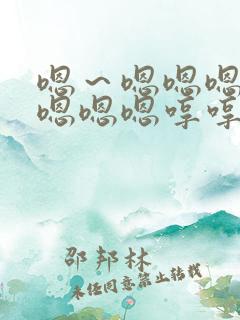 嗯〜嗯嗯嗯
嗯嗯嗯哼哼
邵邦林
未经同意禁止转载